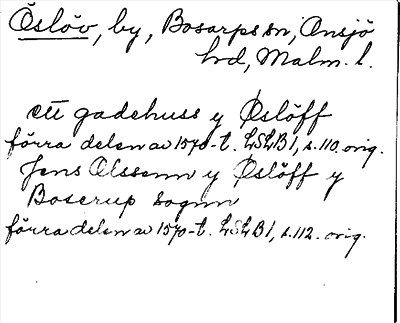 Öslöv, by, Bosarps sn, Onsjö
hd, Malm. l.
ett gadehuss y Øslöff
förra delen av 1570-t. LSLB 1, s. 110. orig.
Jens Olssenn y Øslöff y
Boserup sognn
förra delen av 1570-t. LSLB 1, s. 112. orig.